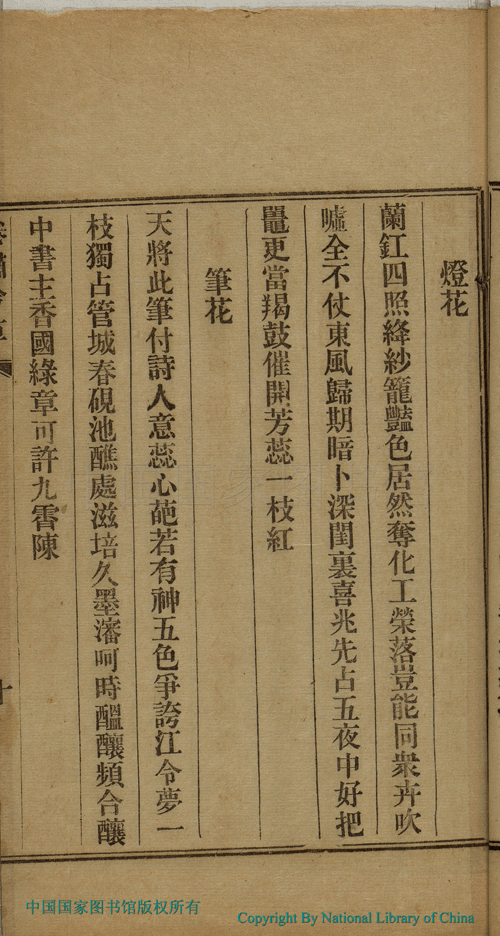 燈花
蘭釭四照絳紗籠豔色居然奪化工榮落豈能同衆卉吹
噓全不仗東風歸期暗卜深閨裏喜兆先占五夜中好把
鼉更當羯鼓催開芳蕊一枝紅
筆花
天將此筆付詩人意蕊心葩若有神五色爭誇江令夢一
枝獨占管城春硯池醮處滋培久墨瀋呵時醞釀頻合釀
中書主香國綠章可許九霄陳
十
中国国家图书馆版权所有
Copyright By National Library of China